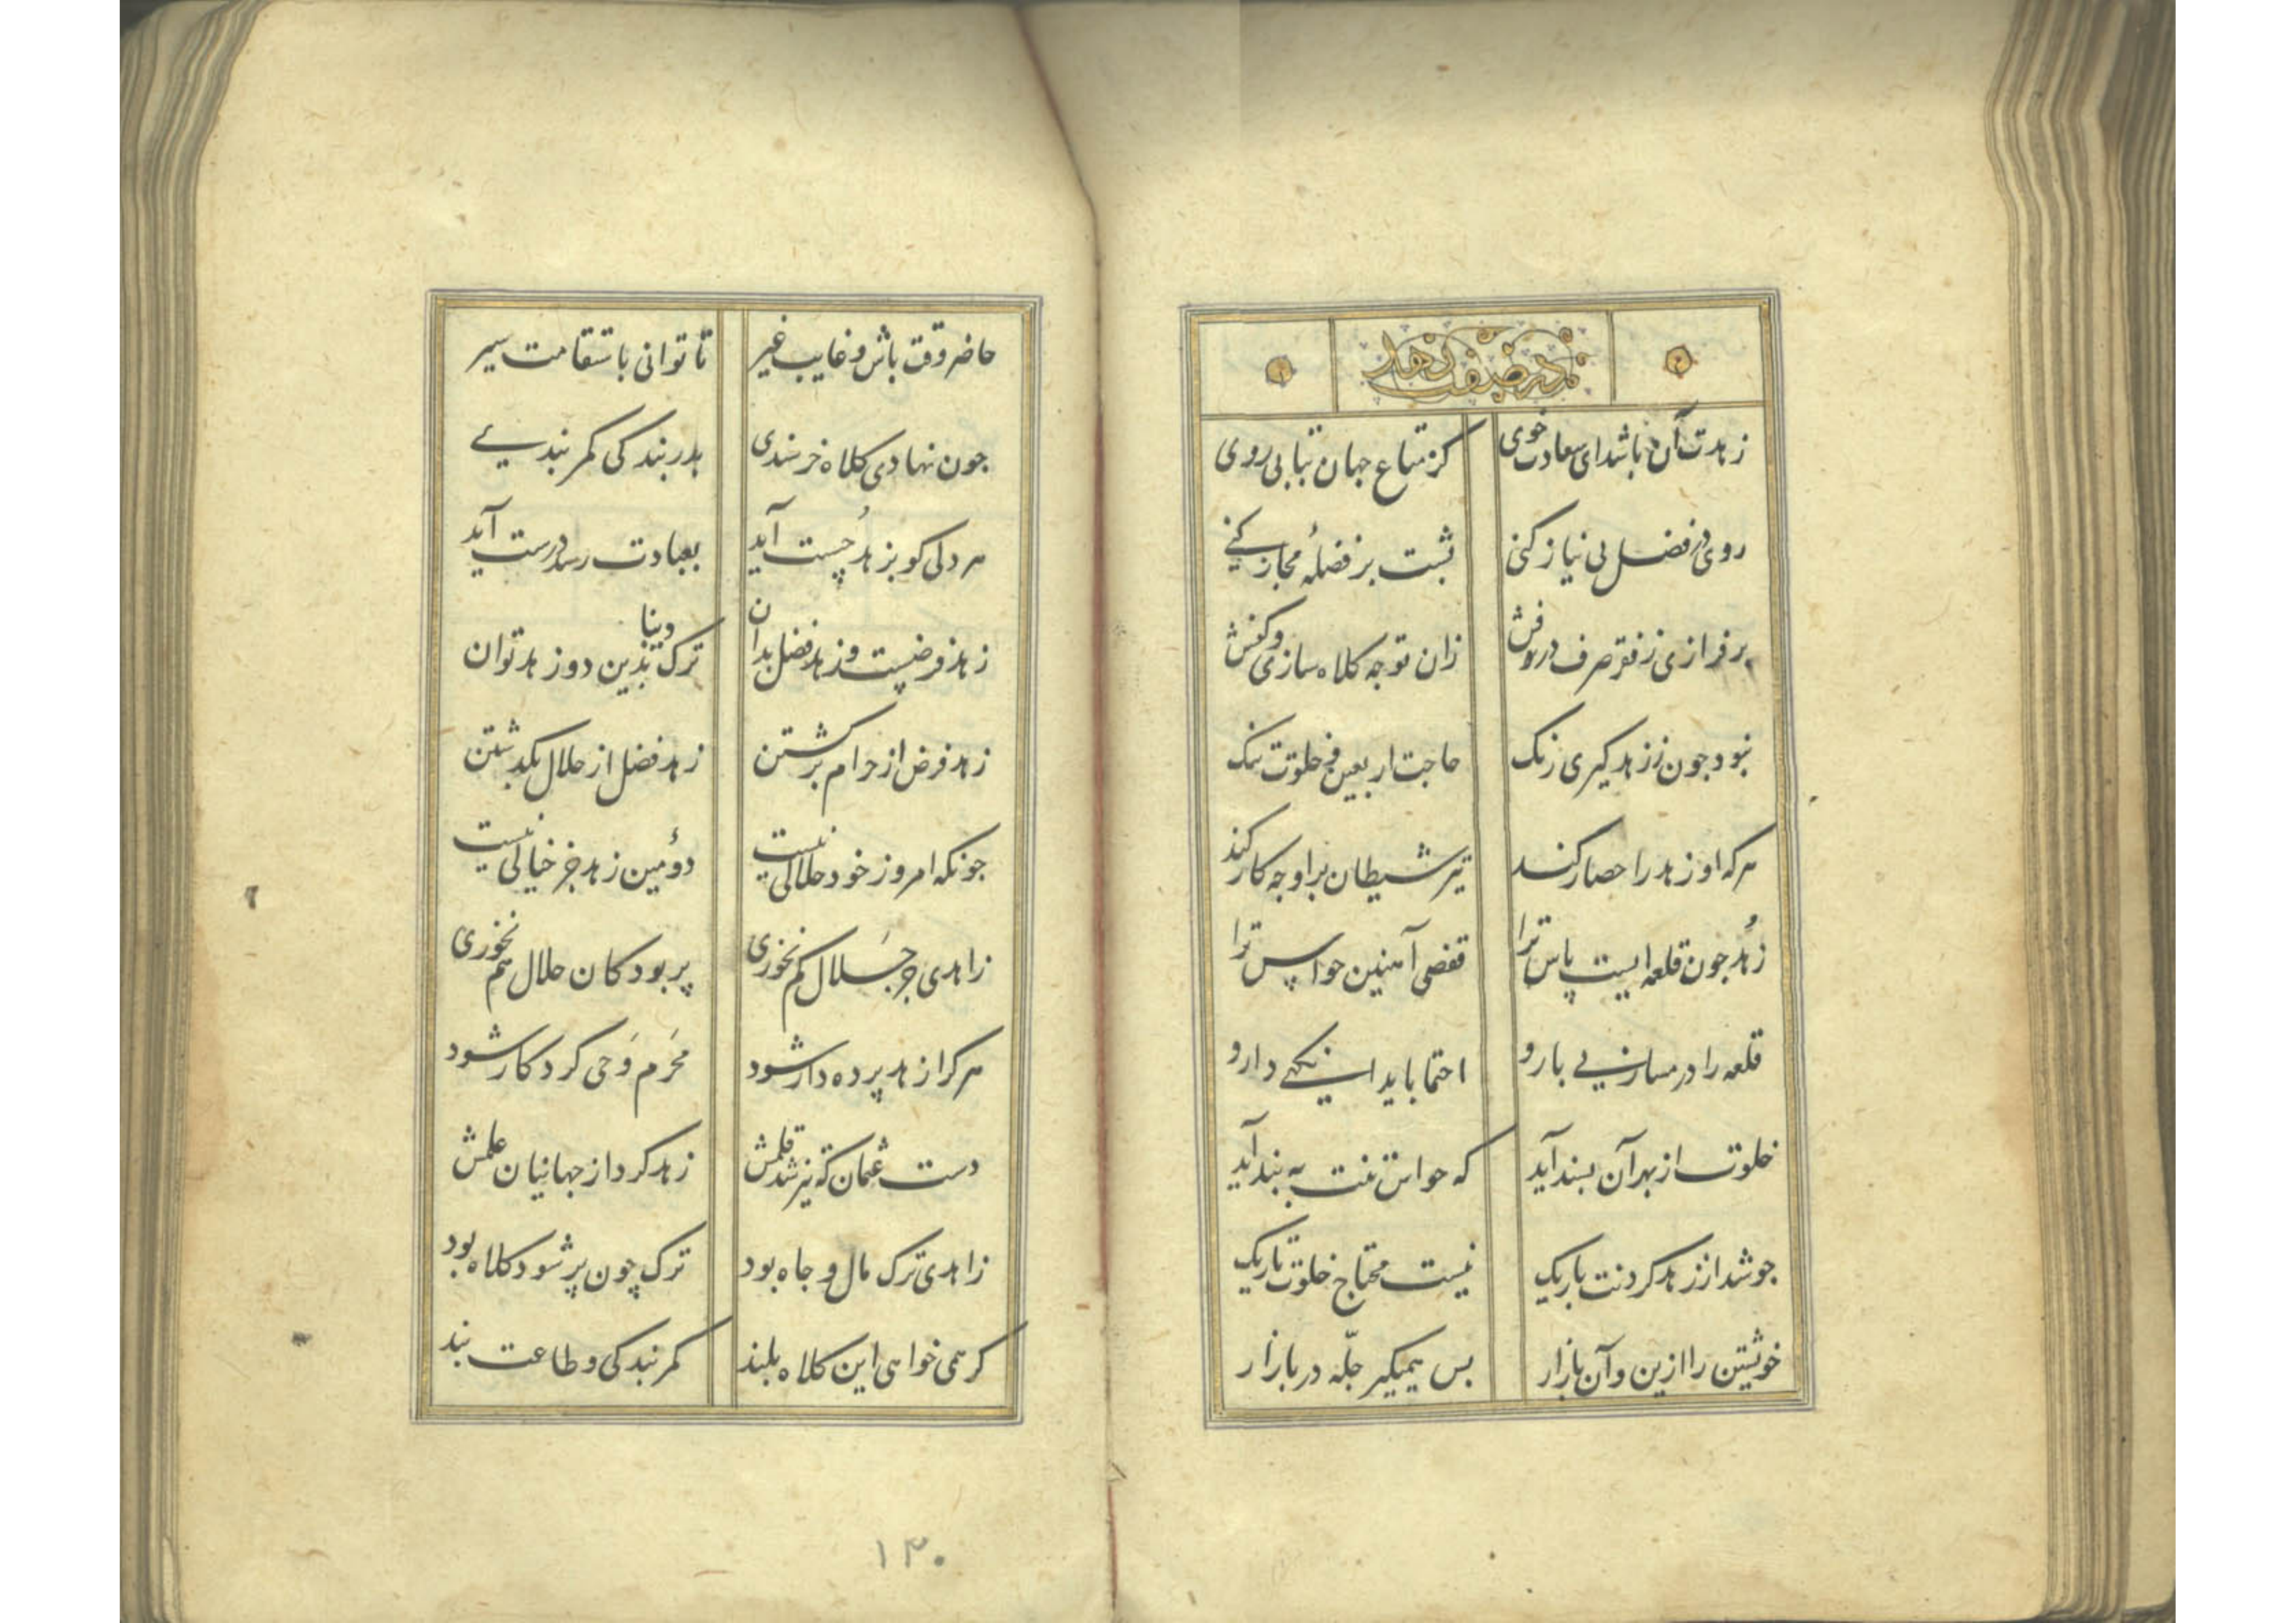 در صفت زهد
زهدت آن باشد ای سعادت خوی کز متاع جهان بتابی روی
روی در فضل بی نیاز کنی پشت بر فضلهٔ مجاز کنی
بر فرازی ز فقر صرف درفش زان توجه کلاه سازی و کفش
نبود چون ز زهد گیری رنگ حاجت اربعین و خلوت تنگ
هر که او زهد را حصار کند تیر شیطان برو چه کار کند
زهد چون قلعه ایست پاس ترا قفصی آهنین حواس ترا
قلعه را در مساز بی بارو احتما باید دارو
خلوت از بهر آن پسند آید که حواس تنت به بند آید
چو شد از زهد گردنت باریک نیست محتاج خلوت تاریک
خویشتن را ازین و آن بازار پس همیگیر چلّه در بازار
حاضر وقت باش و غایب غیر تا توانی باستقامت سیر
چون نهادی کلاه خرسندی بدر بندگی کمر بندی
هر دلی کو بزهد چُست آید بعبادت رسد درست آید
زهد فرضیست و زهد فضل بدان ترک دنیا بدین دو زهد توان
زهد فرض از حرام برگشتن زهد فضل از حلال بگذشتن
چونکه امروز خود حلالی نیست دوُمین زهد جز خیالی نیست
زاهدی جز حَلال کم نخوری پر بود کان حلال هم نخوری
هر کرا زهد پرده دار شود محَرم وَحی کردگار شود
دست عثمان که نیز شد قلمش زهد کرد از جهانیان علمش
زاهدی ترک مال و جاه بود ترک چون پر شود کلاه بود
گر همی خواهی این کلاه بلند کمر بندگی و طاعت بند
۱۳۰